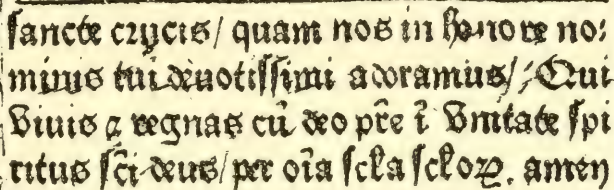 sancte crucis/ quam nos in honore no:
minis tui deuotissimi adoramus/ Qui
Viuis ⁊ regnas cū deo pr̄e ī Vnitate spi
ritus sc̄i deus/ per oīa sc̄la sc̄loꝝ. amen